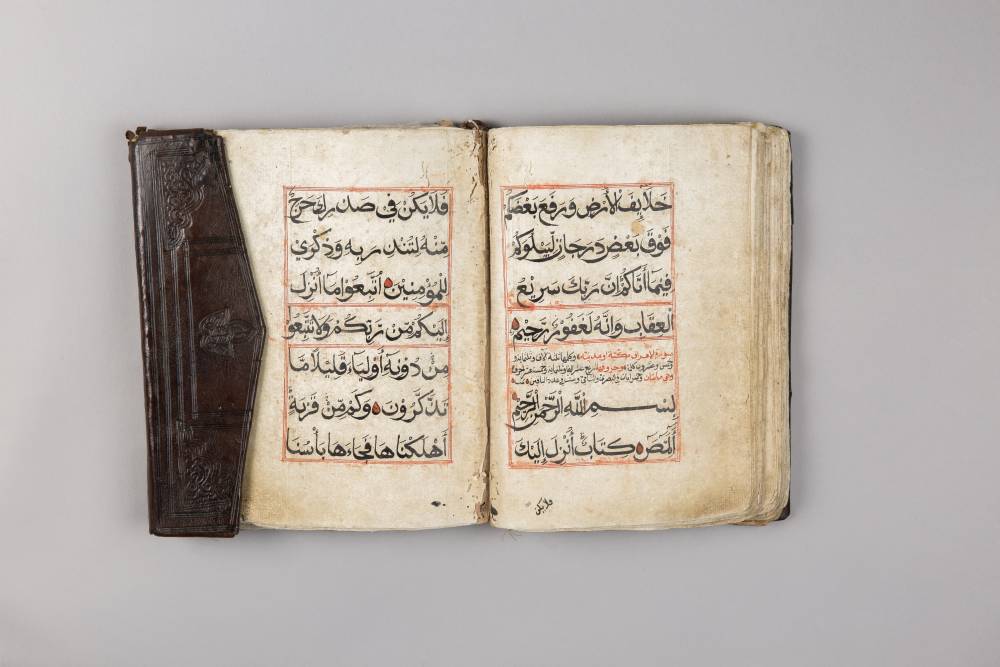 خَلَائِفَ الْأَرْضِ وَرَفَعَ بَعْضَكُمْ
فَوْقَ بَعْضٍ دَرَجَاتٍ لِيَبْلُوَكُمْ
فِيمَا أَتَاكُمْ إِنَّ رَبَّكَ سَرِيعُ
الْعِقَابِ وَإِنَّهُ لَغَفُورٌ رَحِيمٌ
سورة الاعراف مكية
بِسْمِ اللَّهِ الرَّحْمَنِ الرَّحِيمِ
الٓمٓصٓ كِتَابٌ أُنْزِلَ إِلَيْكَ
فلا يكن
فَلَا يَكُنْ فِي صَدْرِكَ حَرَجٌ
مِنْهُ لِتُنْذِرَ بِهِ وَذِكْرَى
لِلْمُؤْمِنِينَ اتَّبِعُوا مَا أُنْزِلَ
إِلَيْكُمْ مِنْ رَبِّكُمْ وَلَا تَتَّبِعُوا
مِنْ دُونِهِ أَوْلِيَاءَ قَلِيلًا مَا
تَذَكَّرُونَ وَكَمْ مِنْ قَرْيَةٍ
أَهْلَكْنَاهَا فَجَاءَهَا بَأْسُنَا